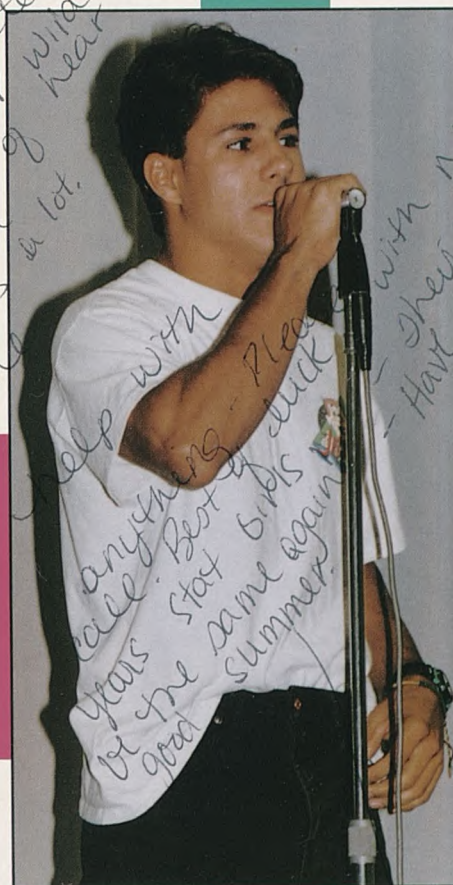 wild
g hear
a lot.
help with
anything - Please
call. Best of luck
years stat girls
be the same again
good summer.
with
- Their
- Have